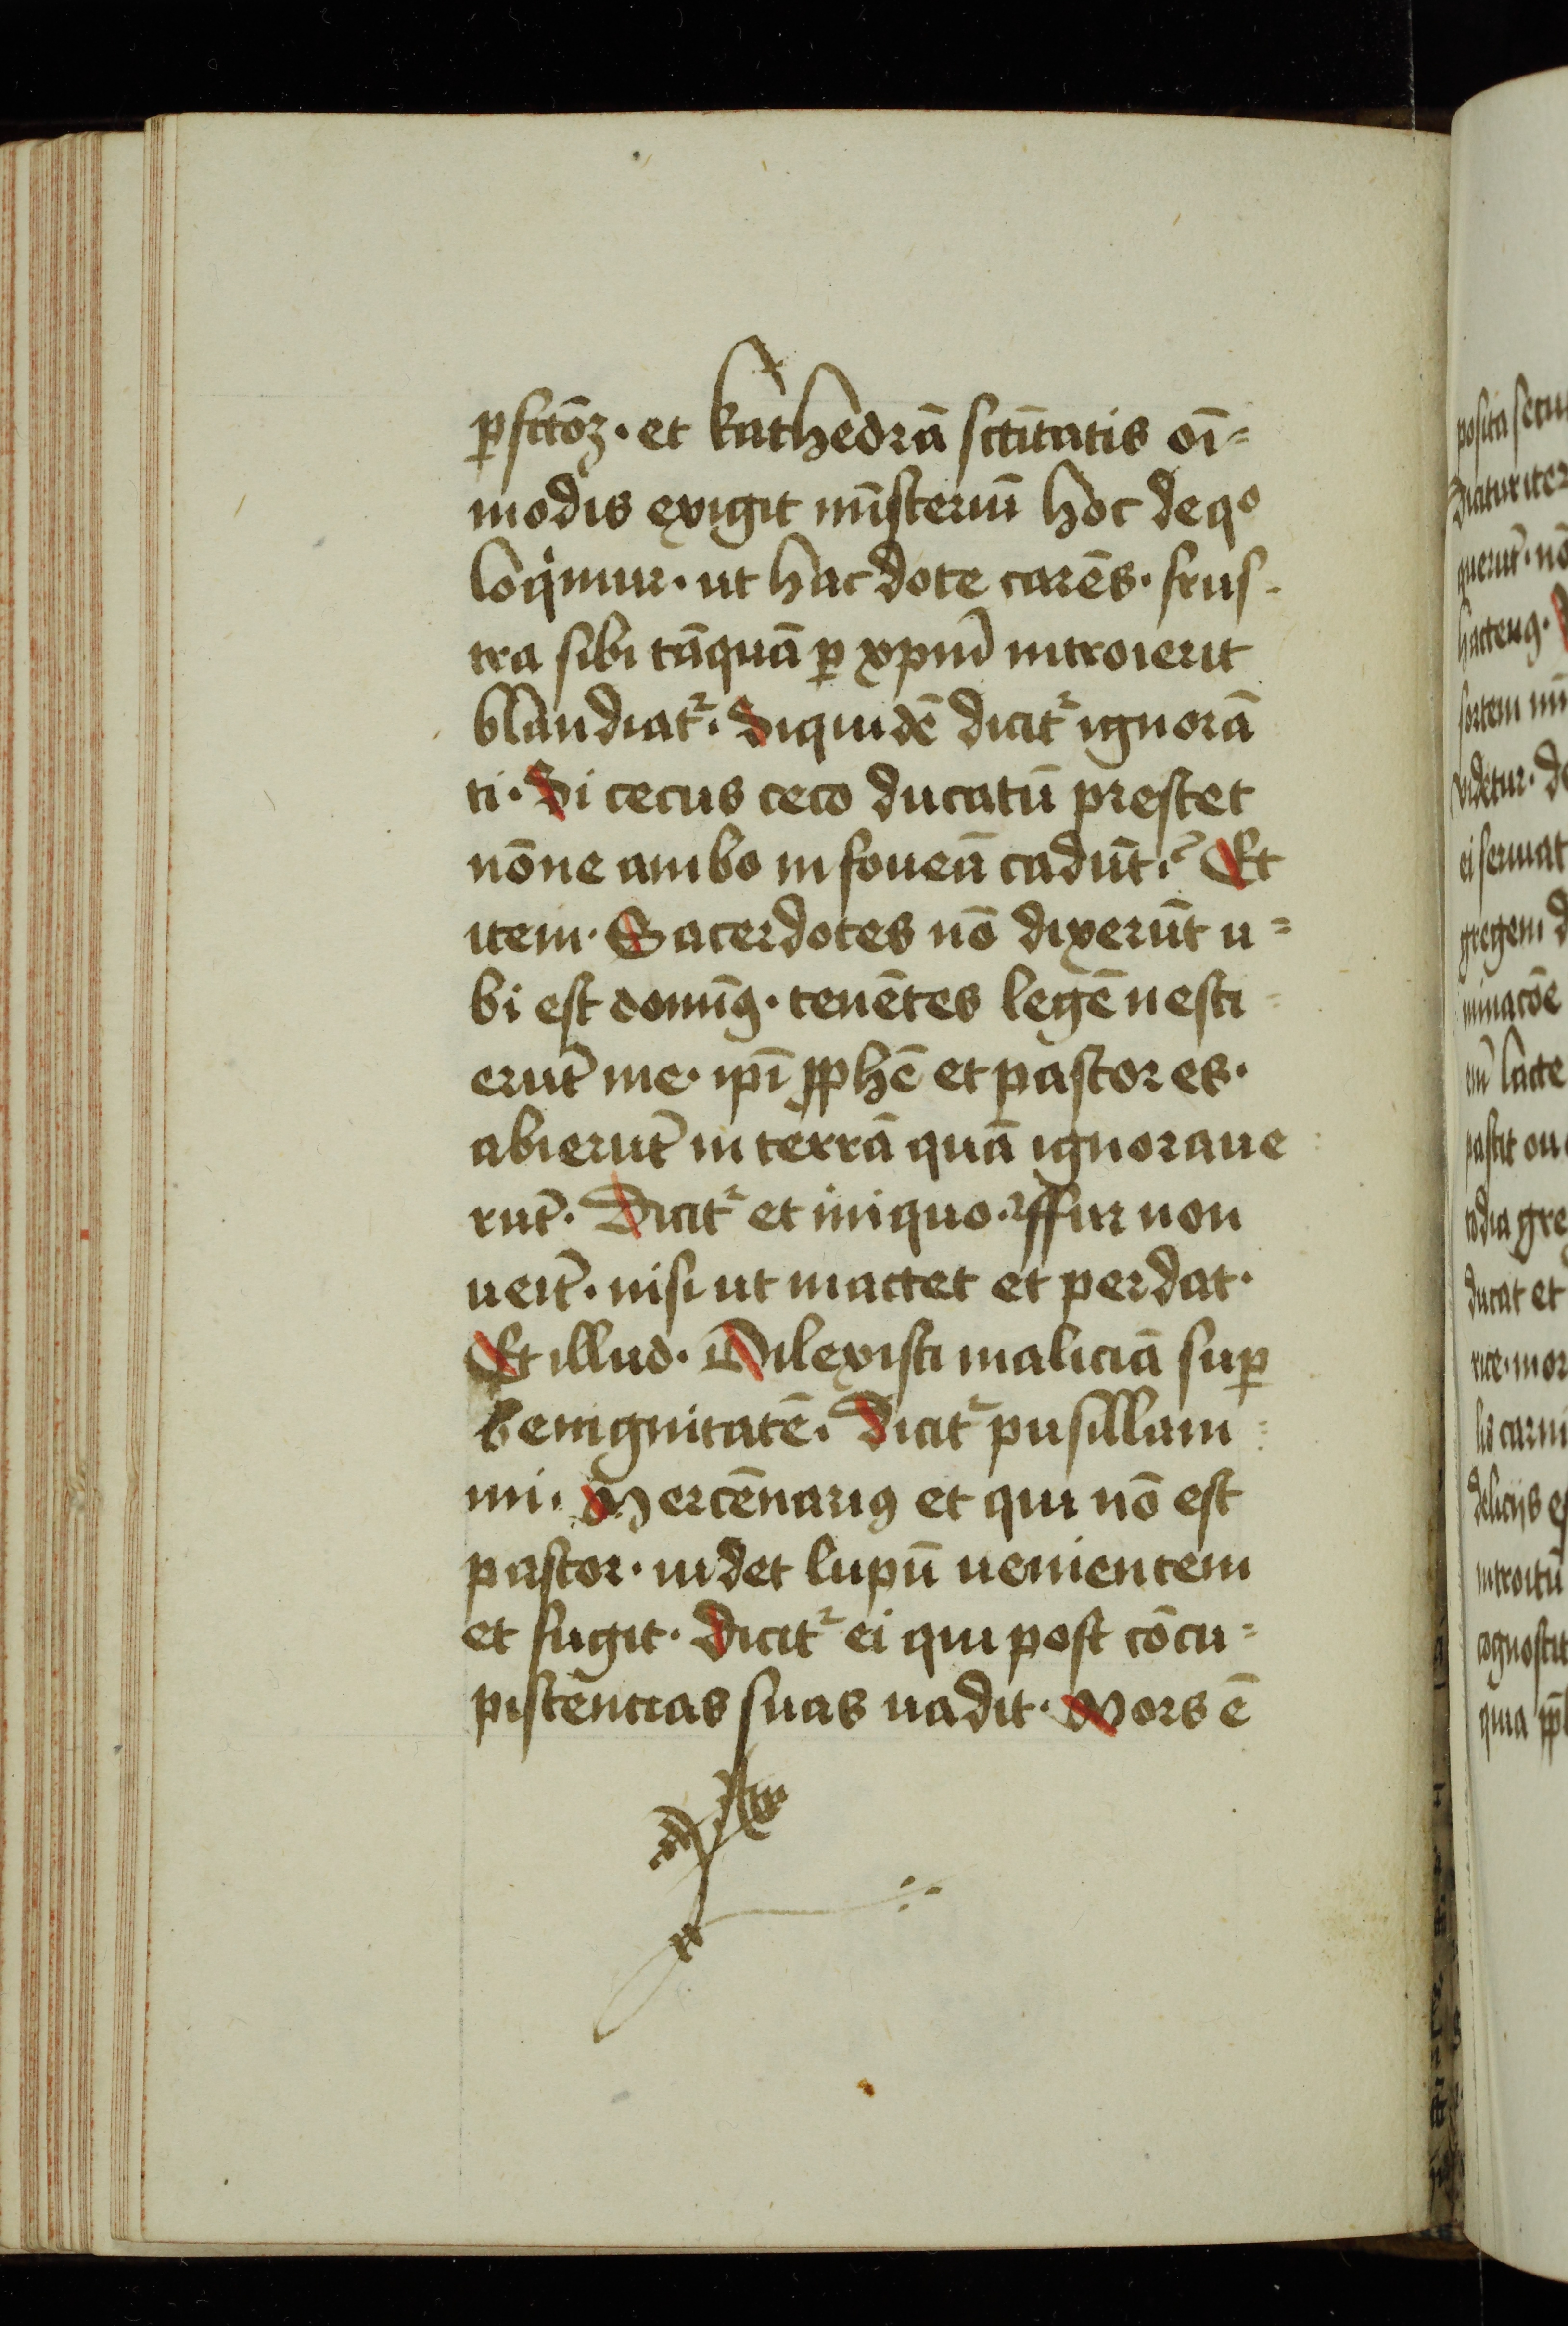 ꝑfctōꝝ · et kathedrā sctītatis oī=
modis exigit mīsteriū hoc de qͦ
loqͥmur · ut hac dote carēs · frus-
tra sibi tāquā ꝑ xpm̄ introierit
blandiatᷣ · Siquidē dicitᷣ ignorā
ti · Si cecus ceco ducatū prestet
nōne ambo in foueā cadūt ? Et
item · Sacerdotes nō dixerūt u=
bi est domīꝰ · tenētes legē nesci=
erūt me · ipī ꝓphē et pastores ·
abierūt in terrā quā ignoraue
rūt · Dicitᷣ et iniquo · ffur non
ueīt · nisi ut mactet et perdat ·
Et illud · Dilexisti maliciā suꝑ
benignitatē · Dicitᷣ pusillani=
mi · Mercēnariꝰ et qui nō est
pastor · uidet lupū uenientem
et fugit · Dicitᷣ ei qui post cōcu=
piscēncias suas uadit · Mors ē
posita secu
querūt · nō
hactenꝰ ·
sortem mi
uidetur · de
ei seruat
gregem d
minacōe
lacte
pascit ou
todia gre
ducat et
rice · mor
lis carni
delicijs e
introitū
cognoscit
quia